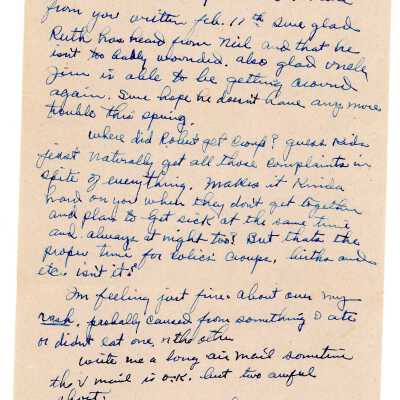 from you written feb. 11th sure glad
Ruth has heard from Neil and that he
isn't too badly wounded. also glad uncle
Jim is able to be getting around
again. Sure hope he doesn't have any more
trouble this spring.
where did Robert get Croup? guess kids
just naturally get all those complaints in
spite of everything. Makes it kinda
hard on you when they don't get together
and plan to get sick at the same time
and always at night too? But thats the
proper time for colic, croupe, births and
etc. isn't it?
I'm feeling just fine. about over my
rash. probably caused from something I ate
or didn't eat one, or the other
write me a long air mail sometime
the V mail is o.k. but two awful
short.